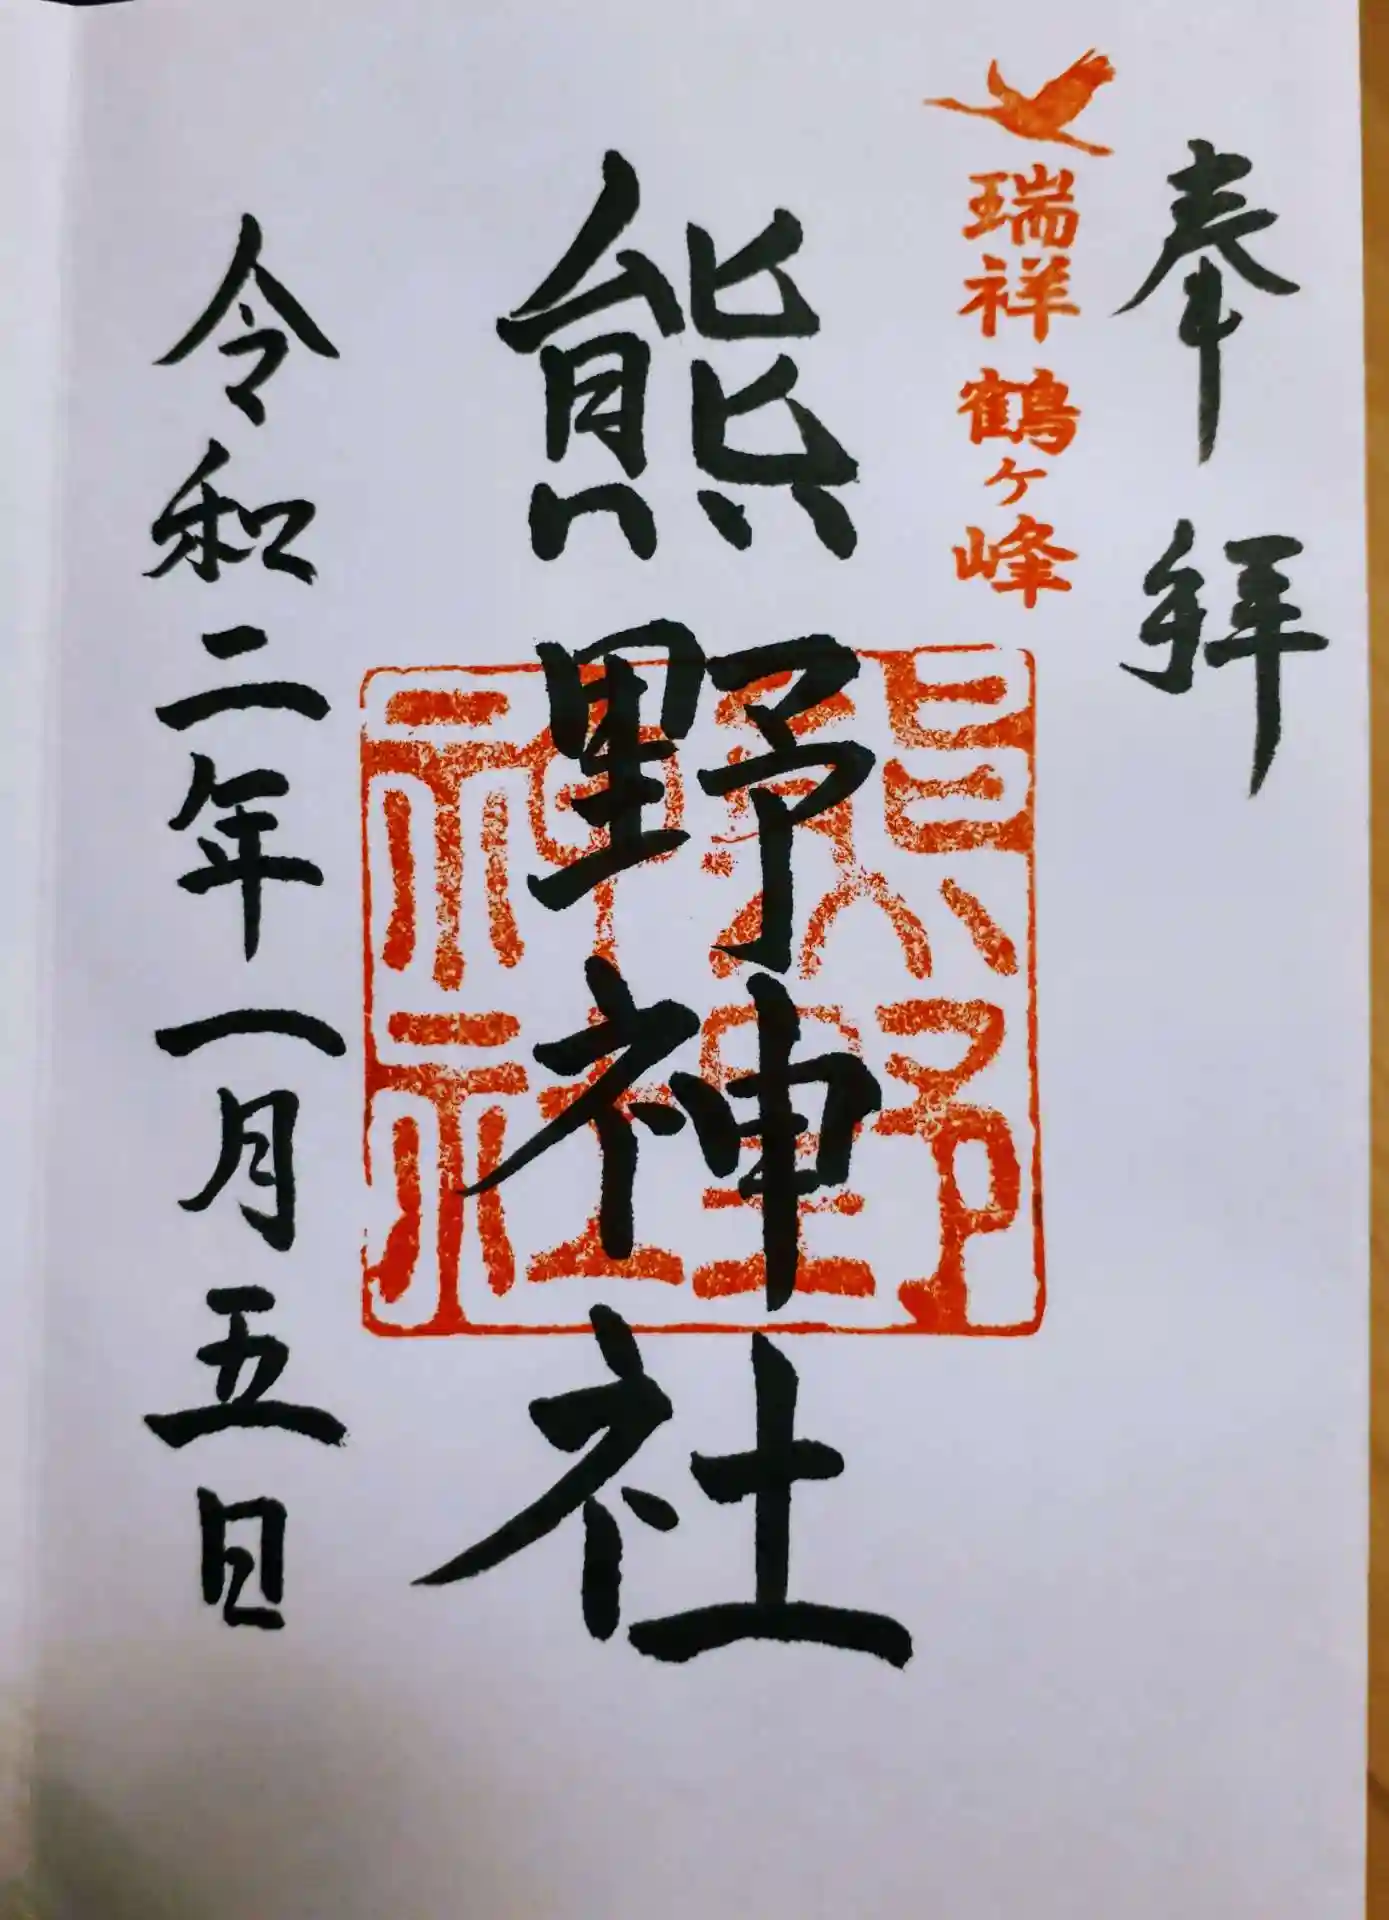 奉拝
瑞祥鶴ヶ峰
熊野神社
熊野
神社
令和二年一月五日